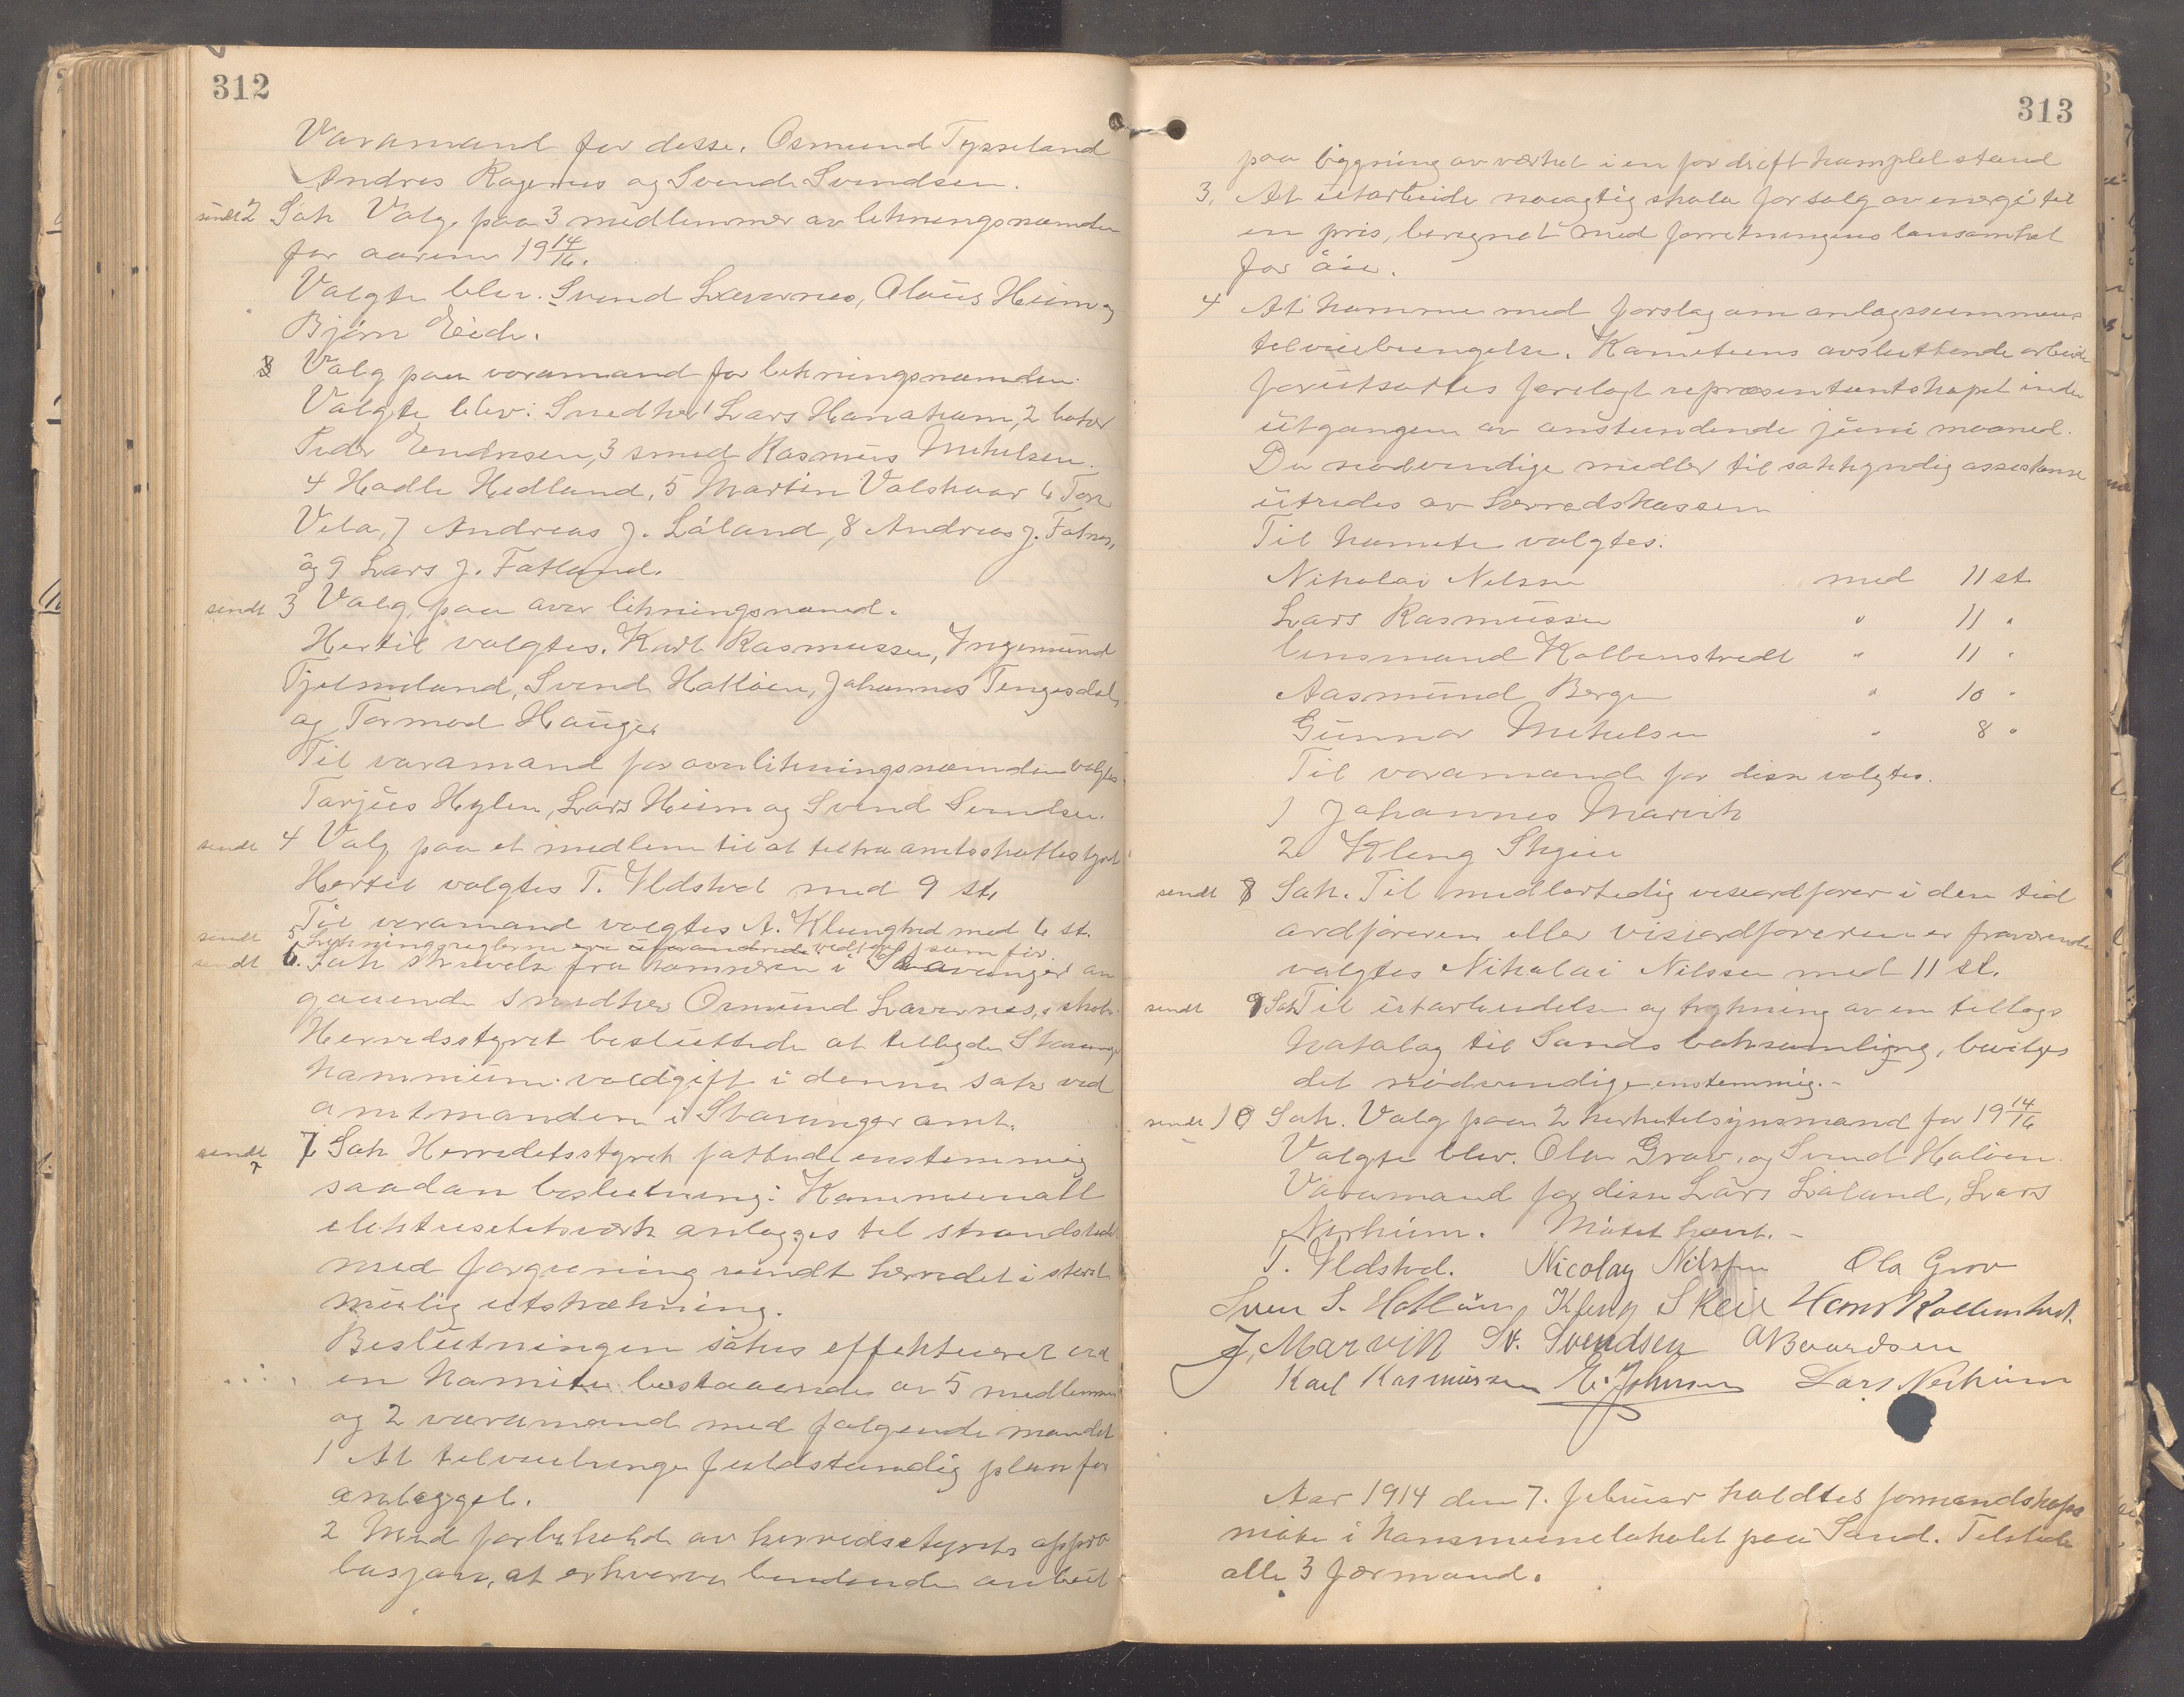 312
Varamænd for desse. Osmund Tysseland
Andres Ragnæs og Svend Svendsen.
sendt 2 Sak Valg paa 3 medlemmer av likningsnæmden
for aarene 19 14/16.
Valgte blev. Svend Lavernes, Olaus Heim og
Bjørn Eide.
3 Valg paa varamænd for likningsnæmden.
Valgte blev: Snedker 1 Lars Hanakam, 2 baker
Peder Endresen, 3 smed Rasmus Mehelsen.
4 Hadle Hedland, 5 Martin Valskaar 6 Tor
Vela, 7 Andreas J. Låland, 8 Andreas J. Fatnes,
og 9 Lars J. Fatland.
sendt 3 Valg paa over likningsnæmd.
Hertil valgtes. Karl Rasmussen, Ingemund
Tjelmeland, Svend Hatløen, Johannes Tengesdal,
og Tormod Hauge.
Til varamænd for overlikningsnæmden valgtes
Tarjeis Hylen, Lars Heim og Svend Svendsen.
sendt 4 Valg paa et medlem til at tiltræ amtsskattestyret
Hertil valgtes T. Ildstad med 9 st.
Til varamand valgtes A. Klungtveit med 6 st.
sendt 5 Likningsreglerne uforandrede vedtat som før.
sendt 6. Sak skrivelse fra kæmneren i Stavanger an
gaaende snedker Osmund Lavernes, skole
Herredsstyret besluttede at tilbyde Stavanger
kommune voldgift i denne sak ved
amtmanden i Stavanger amt.
sendt 7 Sak Herredsstyret fattede enstemmig
saadan beslutning: Kommunalt
elektrisitetsverk anlægges til strandstedet
med forgrening rundt herredet i størst
mulig utstrækning.
Beslutningen søkes effektueret ved
en komite bestaaende av 5 medlemmer
og 2 varamænd med følgende mandat
1 At tilveiebringe fuldstændig plan for
anlægget.
2 Med forbehold av herredsstyrets appro
basjon, at erhverve bindende anbud
313
paa bygning av verket i en for drift komplet stand
3. At utarbeide nøiagtig skala for salg av energi til
en pris, beregnet med forretningens lønsomhet
for øie.
4 At komme med forslag om anlægssummens
tilveiebringelse. Komiteens avsluttende arbeide
forutsættes forelagt repræsentantskapet inden
utgangen av anstundende juni maaned.
De nødvendige midler til sakkyndig assistanse
utredes av herredskassen
Til komite valgtes:
Nikolai Nilsen med 11 st
Lars Rasmussen " 11 "
lensmand Kolbenstvedt " 11 "
Aasmund Berge " 10 "
Gunnar Mehelsen " 8 "
Til varamænd for disse valgtes.
1 Johannes Marvik
2 Kleng Skeie
sendt 8 Sak. Til midlertidig viseordfører i den tid
ordføreren eller viseordføreren er fraværende
valgtes Nikolai Nilssen med 11 st.
sendt 9 Sak Til utarbeidelse og trykning av en tillægs
katalog til Sands boksamling, bevilges
det nødvendige enstemmig.-
sendt 10 Sak. Valg paa 2 kirketilsynsmænd for 19 14/16
Valgte blev. Olav Grov, og Svend Haløen.
Varamænd for disse Lars Låland, Lars
Nerheim. Møtet hævt. -
T. Ildstad. Nicolay Nilssen Ola Grov
Sven S. Hatløen, Kleng Skeie Hans Kolbenstvedt.
J. Marvik Sv. Svendsen O Baardsen
Karl Rasmussen E. Johnsen Lars Nerheim
Aar 1914 den 7. februar holdtes formandskaps
møte i kommunelokalet paa Sand. Tilstede
alle 3 formænd.